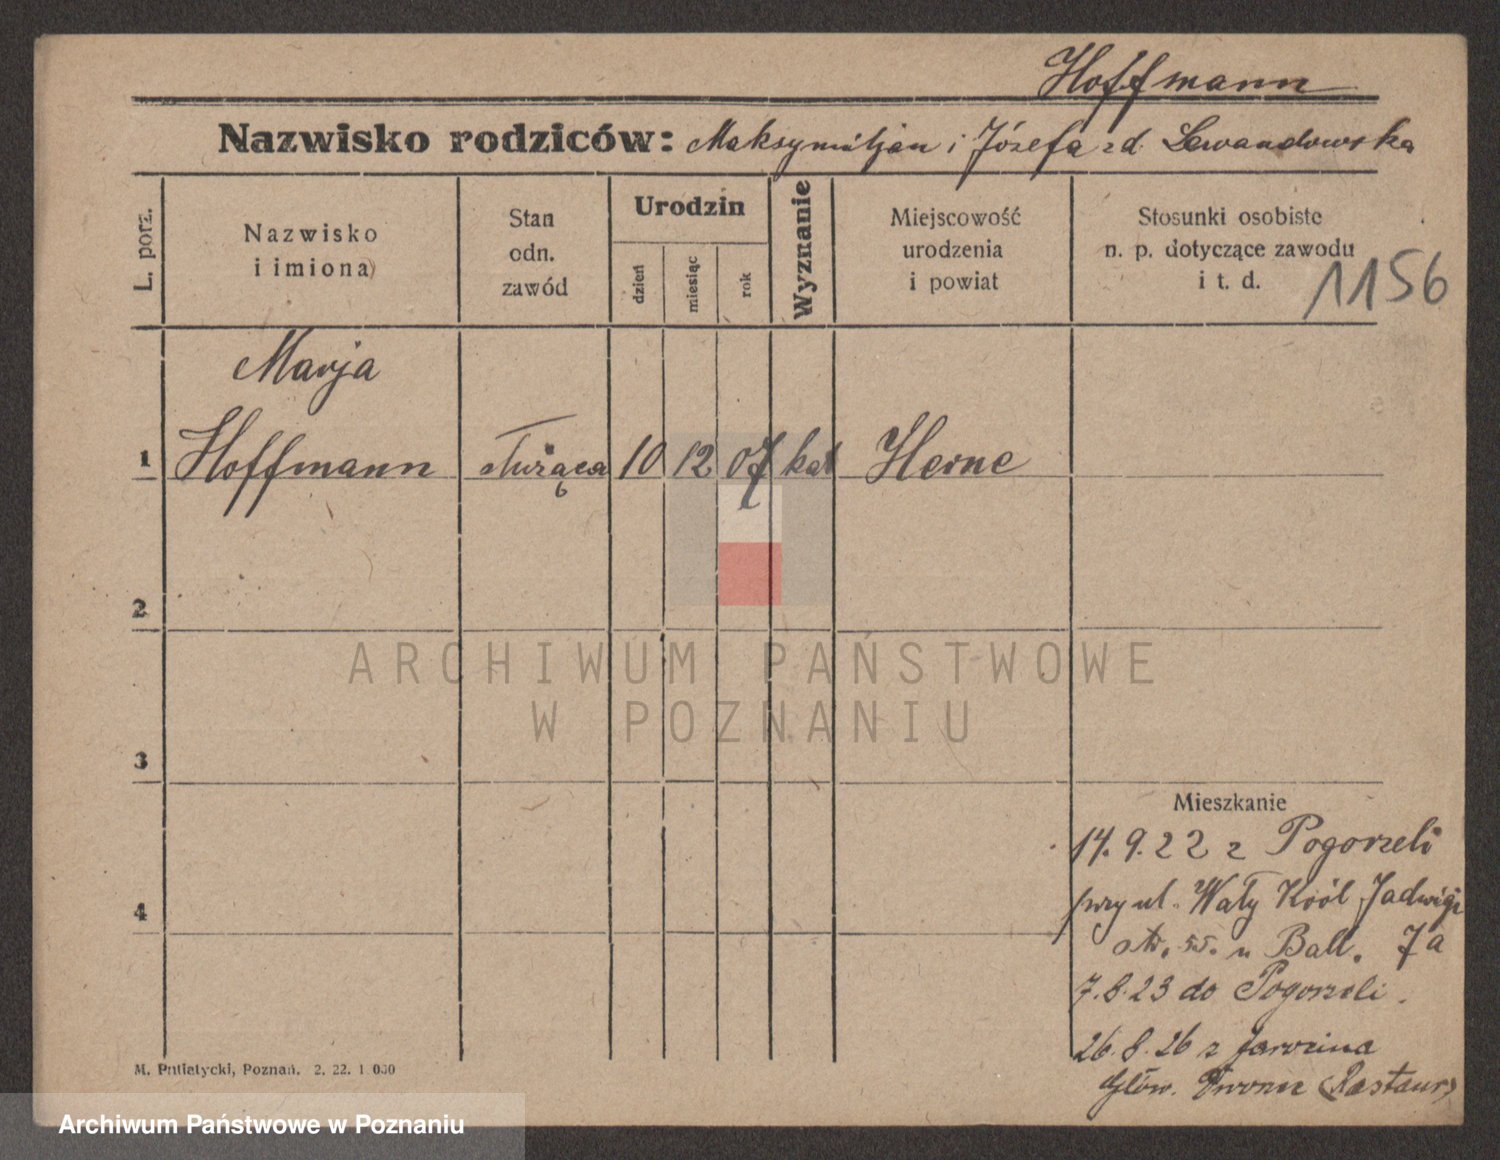 Hoffmann
Nazwisko rodziców: Maksymiljan i Józefa zd. Lewandowska
L. porz.
Nazwisko
i imiona
Stan
odn.
zawód
Urodzin
dzień
miesiąc
rok
Wyznanie
Miejscowość
urodzenia
i powiat
Stosunki osobiste
n. p. dotyczące zawodu
i t. d.
1156
Marja
1 Hoffmann służąca 10 12 07 kat Herne
2
ARCHIWUM PAŃSTWOWE
W POZNANIU
3
Mieszkanie
14.9.22 z Pogorzeli
przy ul. Wały Król Jadwigi
u Ball. 7a
4
7.8.23 do Pogorzeli.
26.8.26 z Jarocina
Głów. (Restaur)
M. Putiatycki, Poznań. 2. 22. 1 000
Archiwum Państwowe w Poznaniu